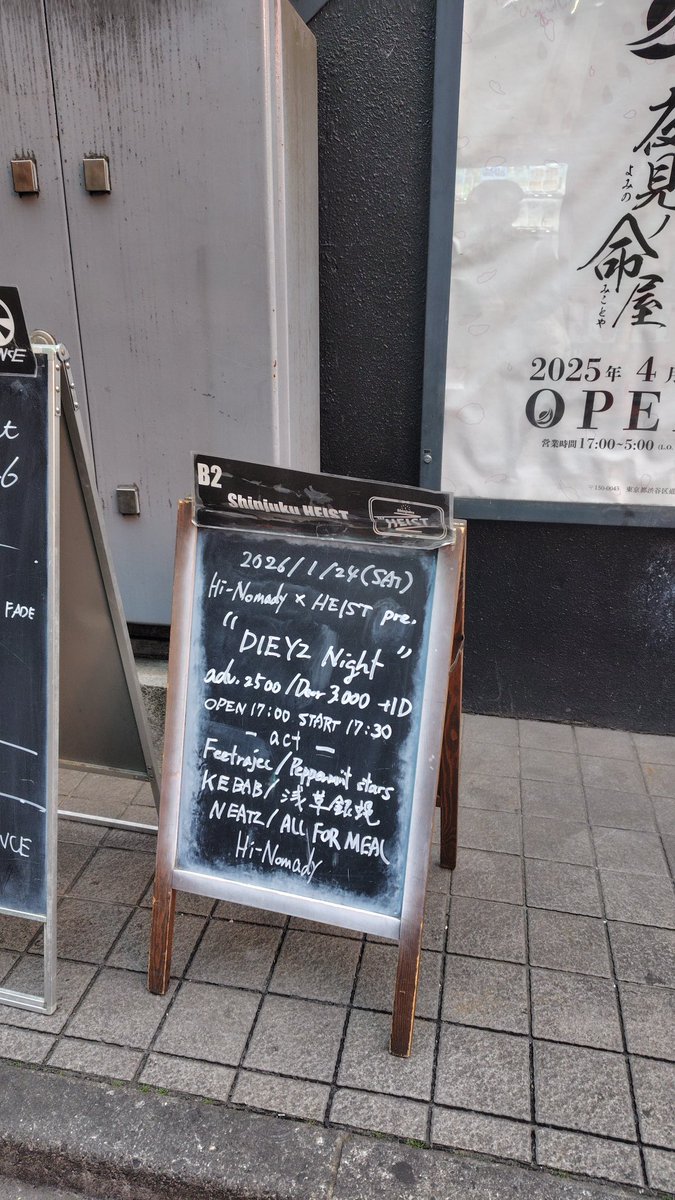 NCE
t
6
FADE
NCE
B2
Shinjuku HEIST
HEIST
2026/1/24(SAT)
Hi-Nomady × HEIST pre.
"DIEYZ Night"
adv.2500/Door 3.000 +1D
OPEN 17:00 START 17:30
- act -
Feetrajec/Peppermint stars
KEBAB/浅草銀蝿
NEATZ/ALL FOR MEAL
Hi-Nomady
夜見ノ
よみの
命屋
みことや
2025年 4月
OPE
営業時間 17:00~5:00 (L.O.
〒150-0043 東京都渋谷区道